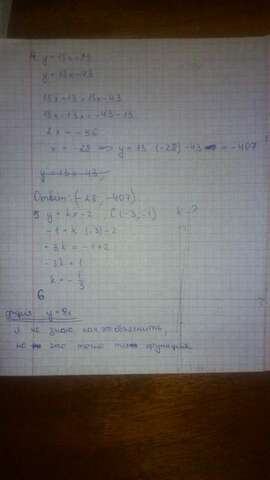 4. y=15x+13
y=13x-43
15x+13=13x-43
15x-13x=-43-13
2x=-56
x=-28 => y=13·(-28)-43 = -407
y=13x-43
Ответ: (-28, -407)
5 y=kx-2 C(-3;-1) k-?
-1=k·(-3)-2
-3k=-1+2
-3k=1
k=-1/3
6
y=8x
я не знаю как это объяснить,
но это точно функция